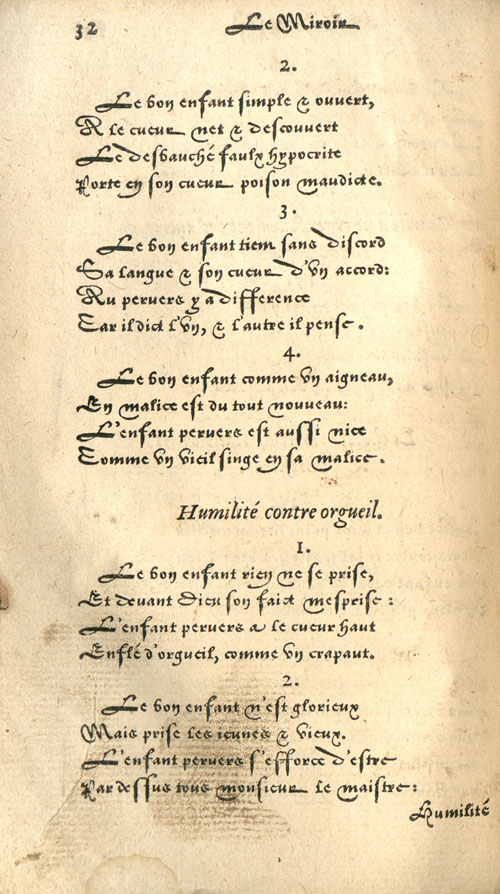 32
Le Miroir
2.
Le bon enfant simple & ouvert,
A le cueur net & descouvert
Le desbauché faulx hypocrite
Porte en son cueur poison maudicte.
3.
Le bon enfant tient sans discord
Sa langue & son cueur d'vn accord:
Au pervers y a difference
Car il dict l'vn, & l'autre il pense.
4.
Le bon enfant comme vn aigneau,
En malice est du tout nouveau:
L'enfant pervers est aussi nice
Comme vn vieil singe en sa malice.
Humilité contre orgueil.
1.
Le bon enfant rien ne se prise,
Et devant Dieu son faict mesprise:
L'enfant pervers a le cueur haut
Enflé d'orgueil, comme vn crapaut.
2.
Le bon enfant n'est glorieux
Mais prise les ieunes & vieux.
L'enfant pervers s'efforce d'estre
Par dessus tous monsieur le maistre:
Humilité